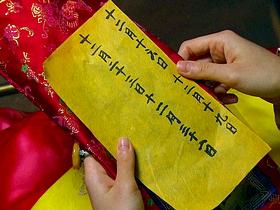 十二月十八日
十二月十九日
十二月二十三日
十二月二十八日